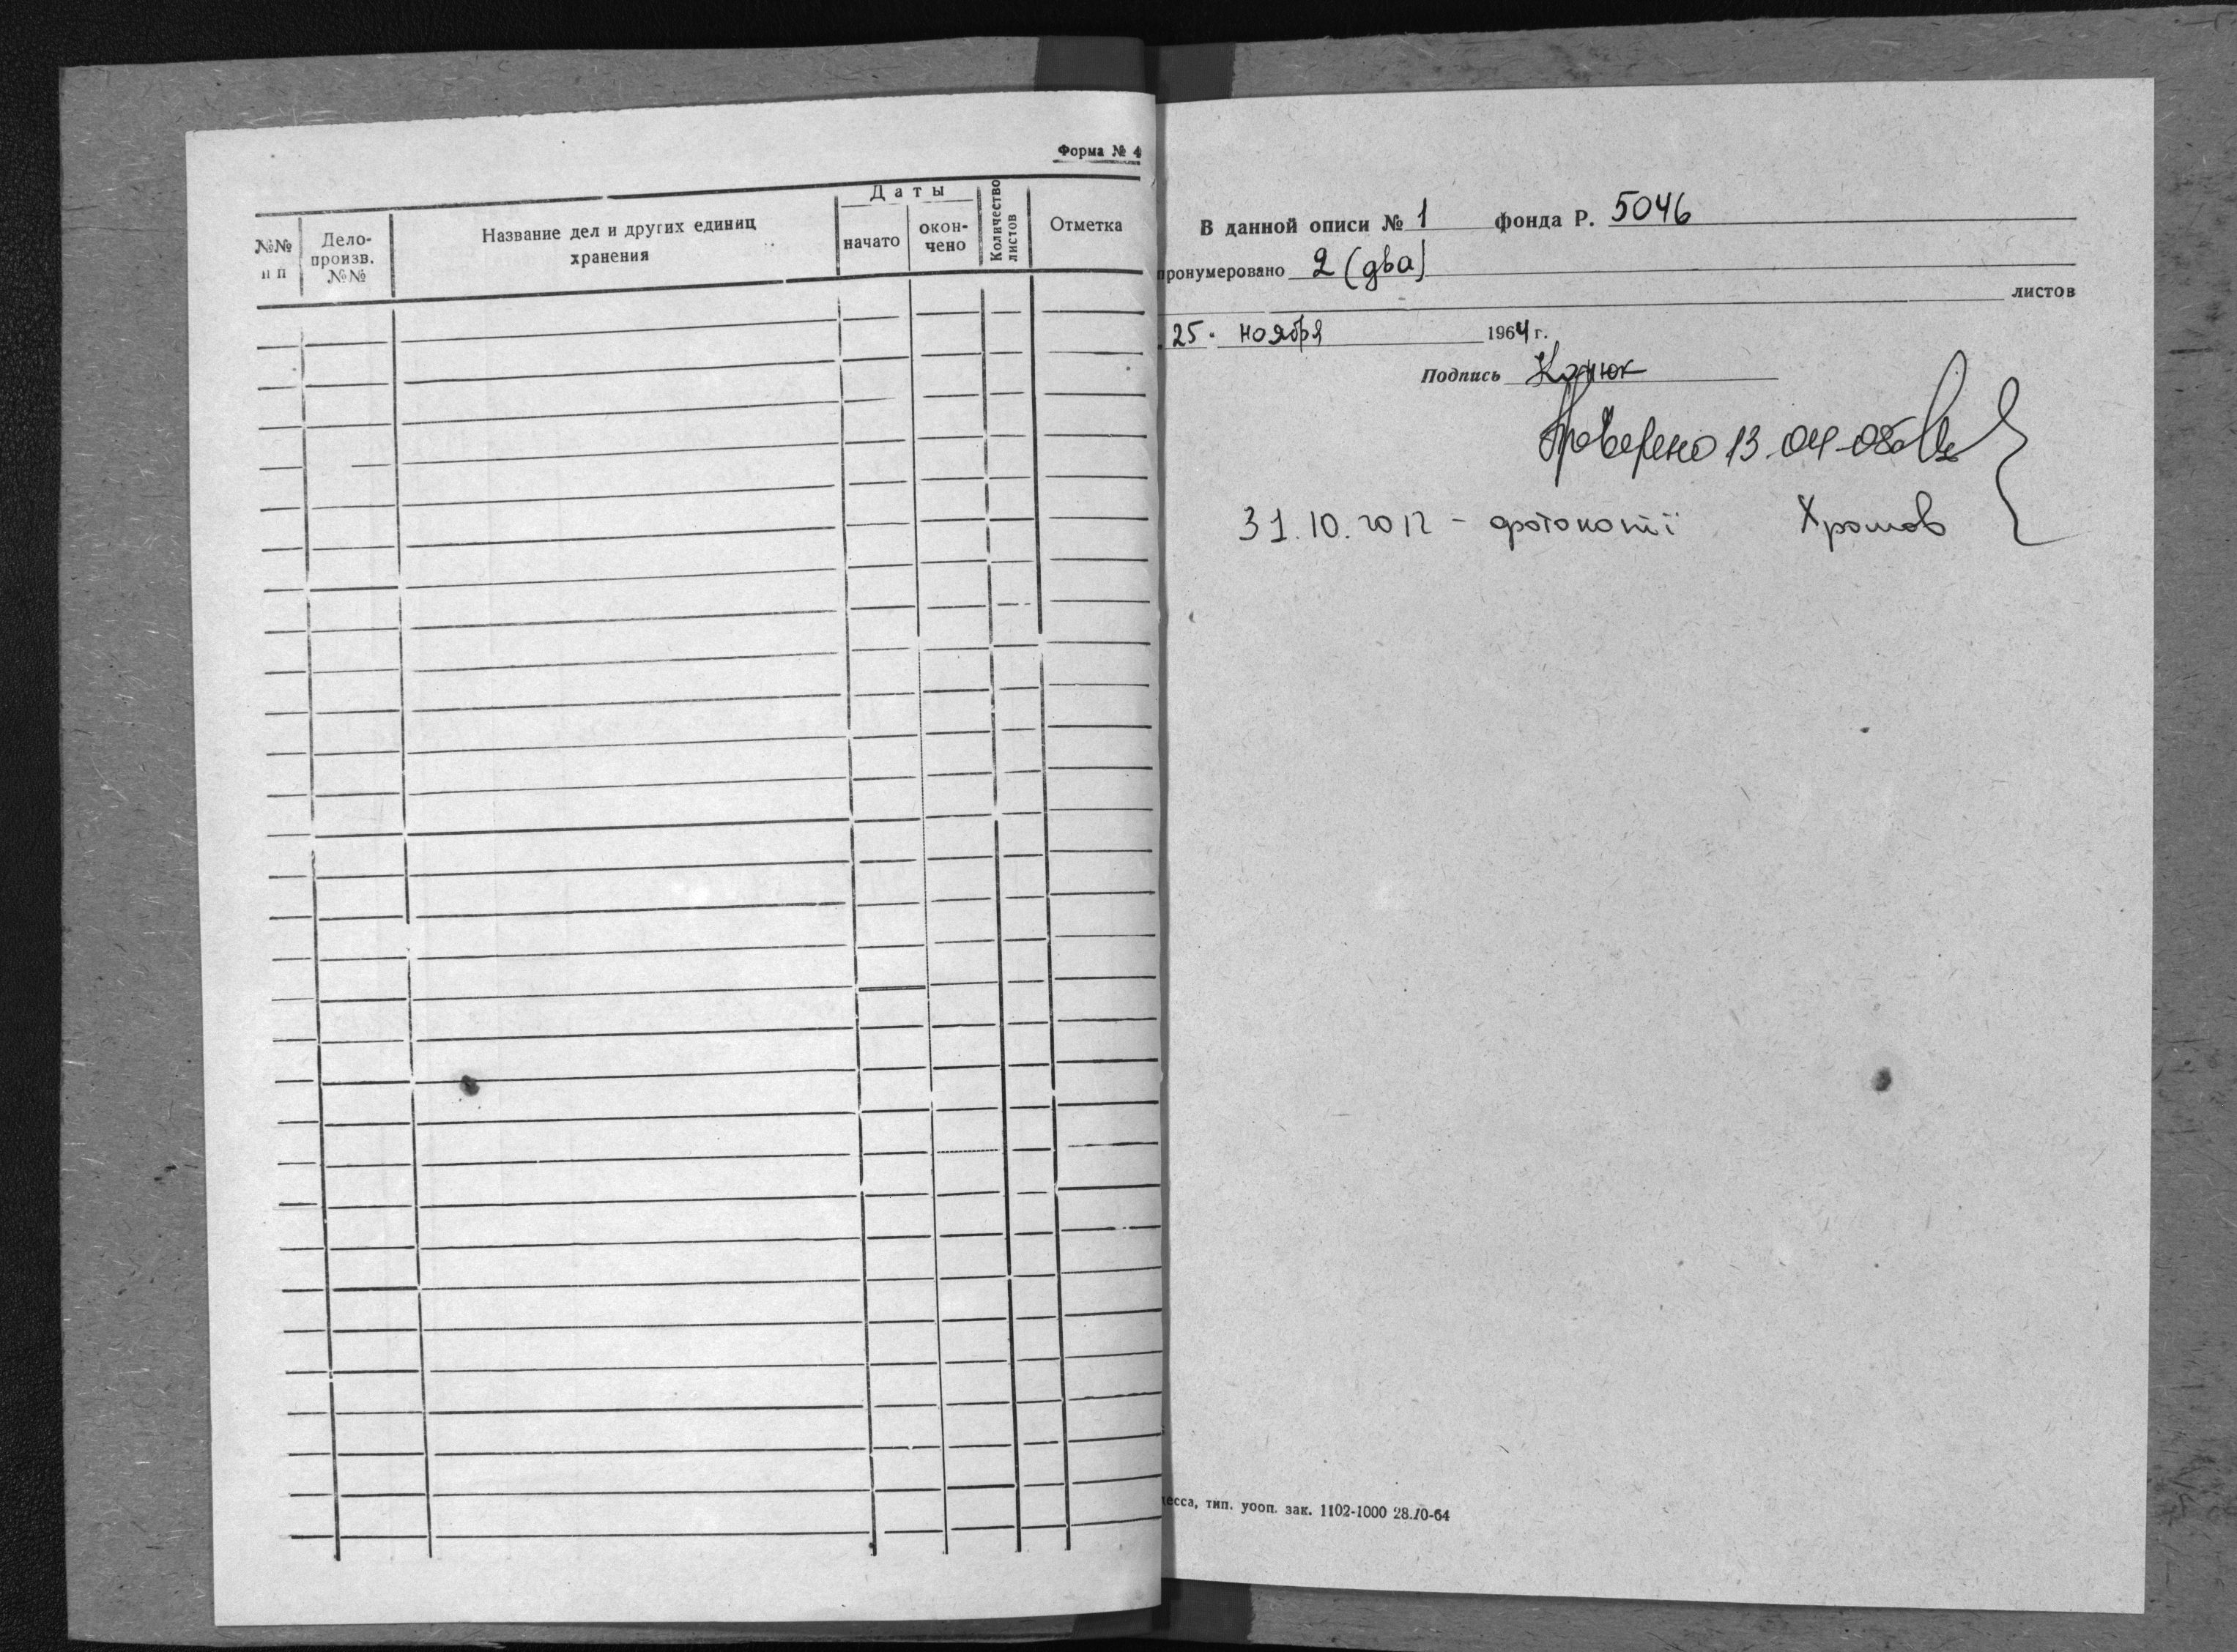 Форма № 4
№№ п п
Дело-
произв.
№№
Название дел и других единиц
хранения
Даты
начато
окон-
чено
Количество
листов
Отметка
В данной описи № 1 фонда Р. 5046
пронумеровано 2 (два)
листов
25 " ноября 1964 г.
Подпись
Проверено 13.04.08
31.10.2012 - фотокопії Хромов
есса, тип. уооп. зак. 1102-1000 28.10-64